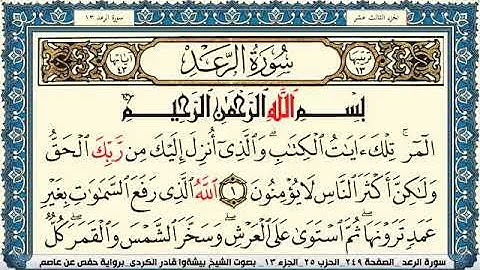 سورة الرعد ١٣
الجزء الثالث عشر
سُورَةُ الرَّعْدِ
ترتيبها ١٣
آياتها ٤٣
بِسْمِ اللَّهِ الرَّحْمَٰنِ الرَّحِيمِ
الٓمٓرۚ تِلْكَ ءَايَٰتُ ٱلْكِتَٰبِۗ وَٱلَّذِىٓ أُنزِلَ إِلَيْكَ مِن رَّبِّكَ ٱلْحَقُّ
وَلَٰكِنَّ أَكْثَرَ ٱلنَّاسِ لَا يُؤْمِنُونَ ١ ٱللَّهُ ٱلَّذِى رَفَعَ ٱلسَّمَٰوَٰتِ بِغَيْرِ
عَمَدٍ تَرَوْنَهَاۖ ثُمَّ ٱسْتَوَىٰ عَلَى ٱلْعَرْشِۖ وَسَخَّرَ ٱلشَّمْسَ وَٱلْقَمَرَۖ كُلٌّ
سورة الرعد الصفحة ٢٤٩ الحزب ٢٥ الجزء ١٣ بصوت الشيخ بيشةوا قادر الكردى برواية حفص عن عاصم